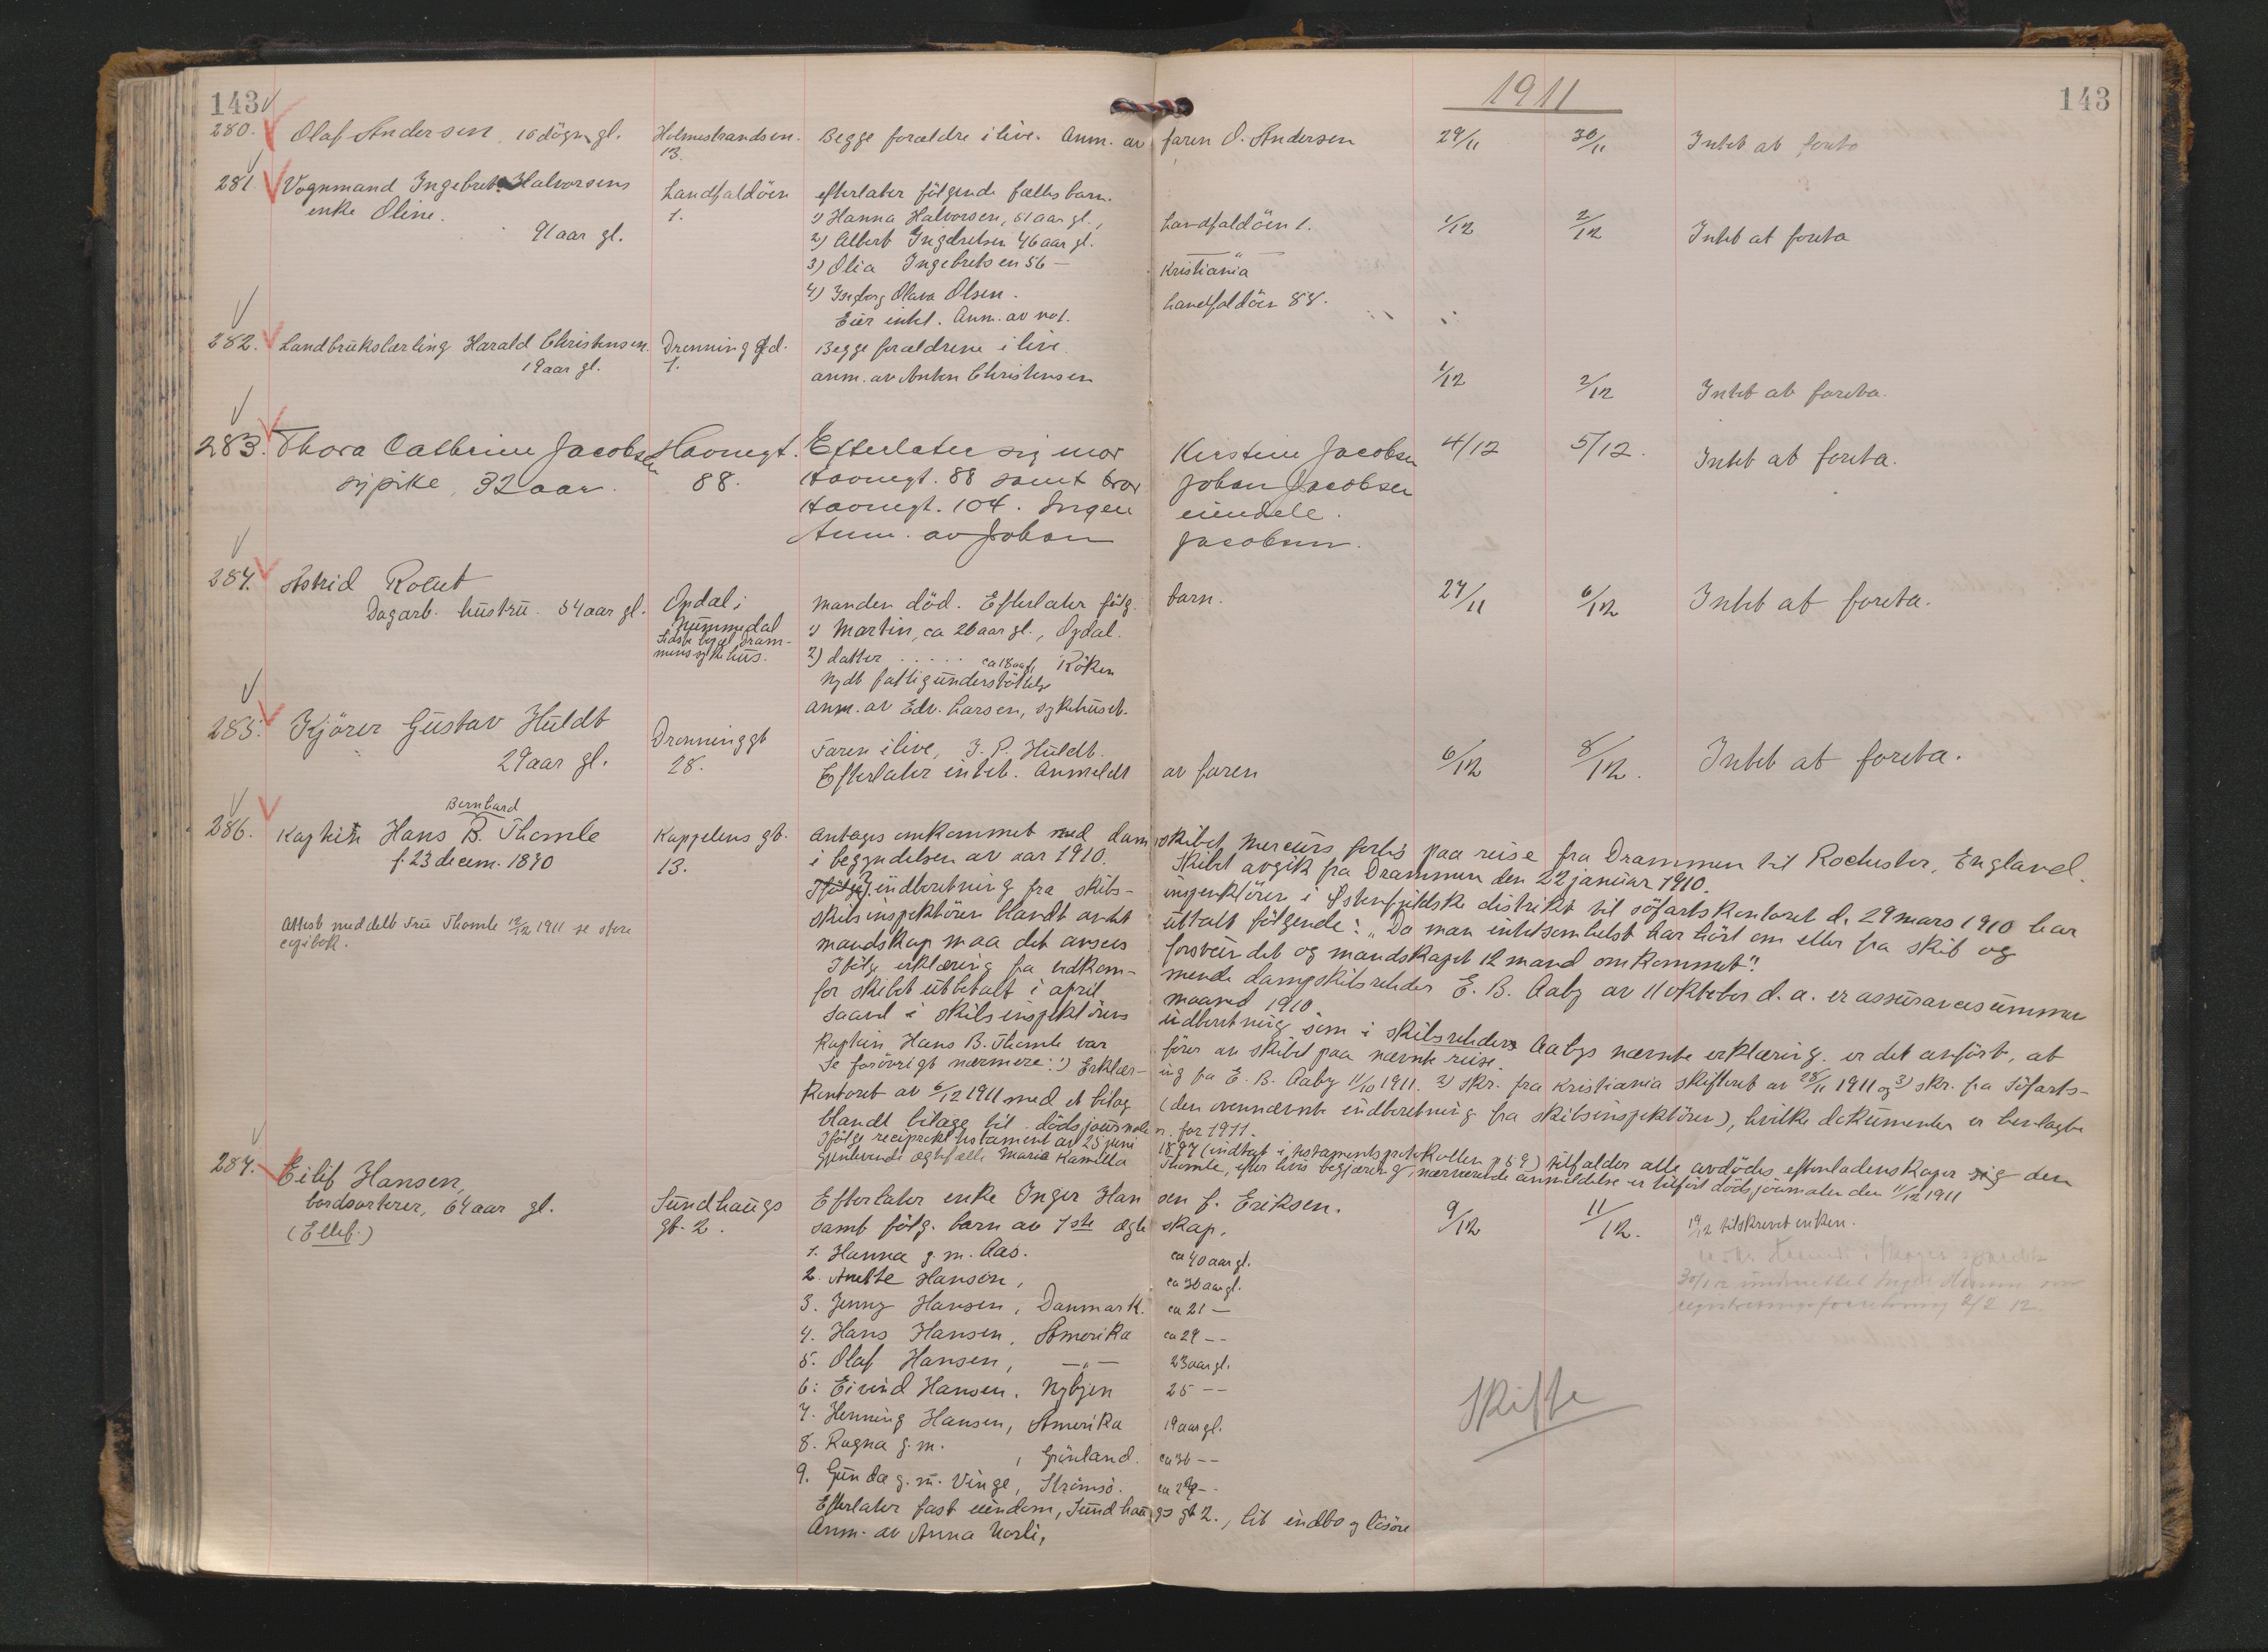 143
1911
143
280. Olaf Andersen, 16 dögn gl. Holmestrandsv. 13. Begge forældre i live. Anm. av faren O. Andersen 29/11 30/11 Intet at foreta
281. Vognmand Ingebret Halvorsens Landfaldöen efterlater fölgende fælles barn.
enke Oline. 1. 1) Hanna Halvorsen, 51 aar gl., Landfaldöen 1. 1/12 2/12 Intet at foreta
91 aar gl. 2) Albert Ingebretsen 46 aar gl. — " —
3) Olia Ingebretsen 56 — Kristiania
4) Ingborg Olava Olsen. Landfaldöen 88.
Eier intet. Anm. av no 1.
282. Landbrukslærling Harald Christensen. Dronninggd. Begge forældrene i live.
19 aar gl. 1. anm. av Anton Christensen 1/12 2/12 Intet at foreta.
283. Thora Cathrine Jacobsen Havnegt. Efterlater sig mor Kirstine Jacobsen 4/12 5/12. Intet at foreta.
sypike, 32 aar. 88. Havnegt. 88 samt bror Johan Jacobsen
Havnegt. 104. Ingen eiendele.
Anm. av Johan Jacobsen.
284. Astrid Opdal i Manden död. Efterlater fölg. barn. 27/11 6/12 Intet at foreta.
Dagarb. hustru. 54 aar gl. Nummedal 1) Martin, ca 26 aar gl., Opdal.
Sidste bopæl Drammens sykehus. 2) datter ..... ca 18 aar, Röken
Nydt fattigunderstöttelse
anm. av Edv. Larsen, sykehuset.
285. Kjörer Gustav Huldt Dronninggt Faren i live, J. P. Huldt.
29 aar gl. 28. Efterlater intet. Anmeldt av faren 6/12 8/12. Intet at foreta.
Bernhard
286. Kaptein Hans B. Thomle Kappelens gt. Antages omkommet med dampskibet Mercurs forlis paa reise fra Drammen til Rochester, England.
f. 23 decem. 1870 13. i begyndelsen av aar 1910. Skibet avgik fra Drammen den 22 januar 1910.
Ifölge indberetning fra skibsinspektören i Østenfjeldske distrikt til söfartskontoret d. 29 mars 1910 har
Attest meddelt Fru Thomle 12/12 1911 se store skibsinspektören blandt andet uttalt fölgende: "Da man intetsomhelst har hört om eller fra skib og
copibok. mandskap maa det ansees forsvundet og mandskapet 12 mand omkommet".
Ifölge erklæring fra vedkommende dampskibsreder E. B. Aaby av 11 oktober d. a. er assurancesummen
for skibet utbetalt i april maaned 1910.
Saavel i skibsinspektörens indberetning som i skibsreder Aabys nævnte erklæring er det anfört, at
Kaptein Hans B. Thomle var förer av skibet paa nævnte reise.
Se forövrigt nærmere: 1) Erklæring fra E. B. Aaby 11/10 1911. 2) Skr. fra Kristiania skifteret av 28/11 1911 og 3) skr. fra Söfarts-
kontoret av 6/12 1911 med et bilag (den ovennævnte indberetning fra skibsinspektören), hvilke dokumenter er henlagte
blandt bilage til dödsjournalen for 1911.
Ifölge reciprokt testament av 25 juni 1897 (indtat i testamentsprotokollen p 59) tilfalder alle avdödes efterladenskaper den
gjenlevende ægtefælle Maria Kamilla Thomle, efter hvis begjæring nærværende anmeldelse er tilfört dödsjournalen den 11/12 1911
287. Eilif Hansen, Sundhaugs Efterlater enke Inger Hansen f. Eriksen. 9/12 11/12. 19/12 tilskrevet enken.
bordsorterer, 64 aar gl. gt. 2. samt fölg. barn av 1ste ægteskap.
(Ellef.) 1. Hanna g. m. Aas. ca 40 aar gl.
2. Anette Hansen, ca 36 aar gl.
3. Jenny Hansen, Danmark. ca 21 — 30/1 12 underrettet Inger Hansen om
4. Hans Hansen, Amerika ca 29 — registreringsforretning 2/2 12.
5. Olaf Hansen, —"— 23 aar gl.
6: Eivind Hansen. Nybyen 25 —
7. Henning Hansen, Amerika 19 aar gl. Skifte
8. Ragna g. m. , Grönland. ca 36 —
9. Gunda g. m. Vinge, Strömsö. ca 29 —
Efterlater fast eiendom, Sundhaugs gt 2., litt indbo og lösöre
Anm. av Anna